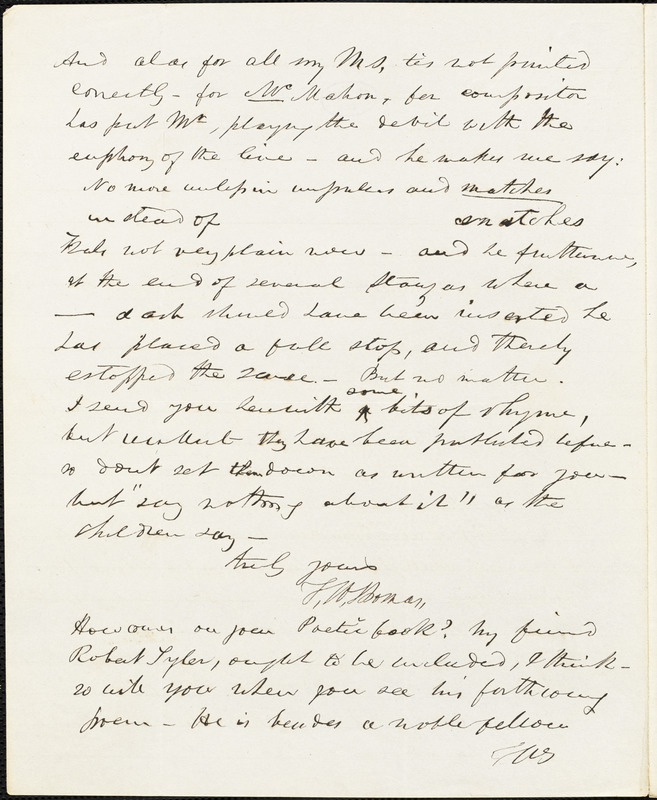 And alas for all my Ms, tis not printed
correctly – for Mc Mahon, for compositor
has put Mr, playing the devil with the
euphony of the line – and he makes me say:
No more unless in whispers and matches
instead of snatches
That's not very plain now – and he furthermore,
at the end of several stanzas where a
— dash should have been inserted he
has placed a full stop, and thereby
estopped the sense. – But no matter.
I send you herewith some bits of rhyme,
but recollect they have been published before –
so dont set them down as written for you –
but "say nothing about it" as the
children say –
truly yours
F. W. Thomas,
How comes on your Poetic book? My friend
Robert Tyler, ought to be included, I think –
so will you when you see his forthcoming
poem – He is besides a noble fellow
FWT